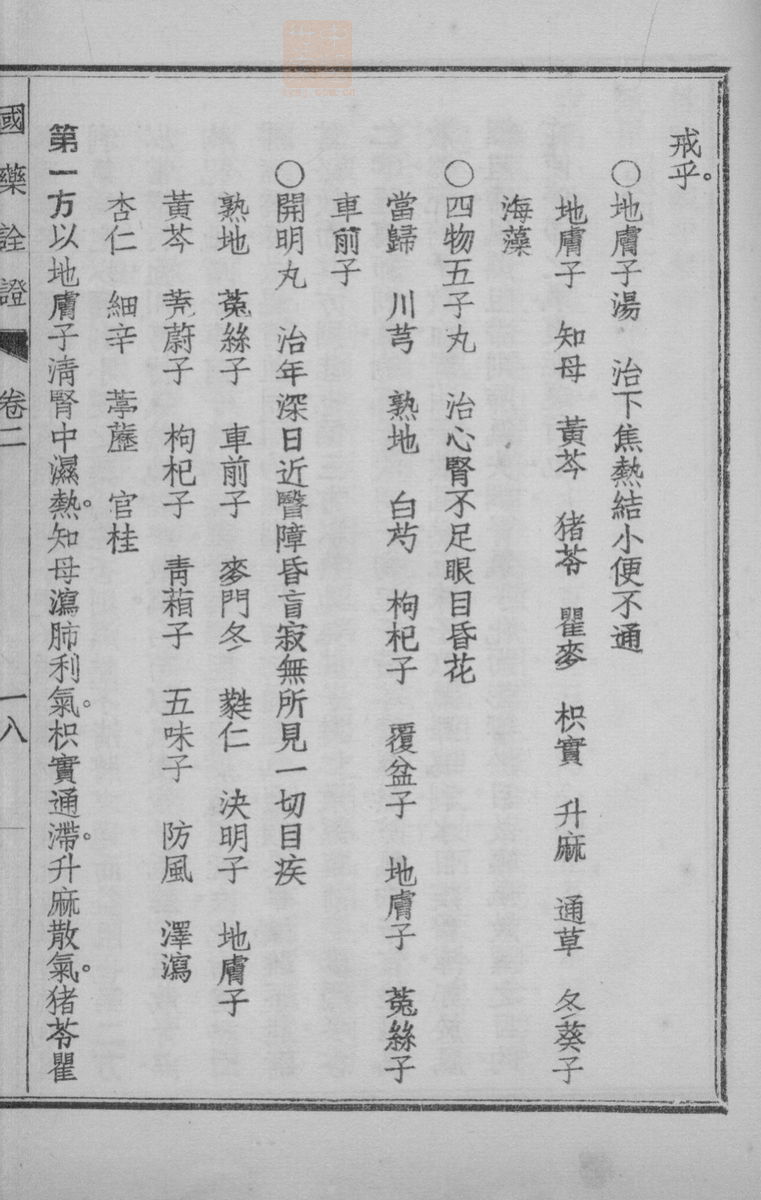 戒乎。
〇地膚子湯　治下焦熱結小便不通
地膚子　知母　黃芩　猪苓　瞿麥　枳實　升麻　通草　冬葵子
海藻
〇四物五子丸　治心腎不足眼目昏花
當歸　川芎　熟地　白芍　枸杞子　覆盆子　地膚子　菟絲子
車前子
〇開明丸　治年深日近瞖障昏盲寂無所見一切目疾
熟地　菟絲子　車前子　麥門冬　蕤仁　決明子　地膚子
黃芩　茺蔚子　枸杞子　靑葙子　五味子　防風　澤瀉
杏仁　細辛　葶藶　官桂。
第一方以地膚子淸腎中濕熱。知母瀉肺利氣。枳實通滯。升麻散氣。猪苓瞿
國藥詮證　卷二　一八